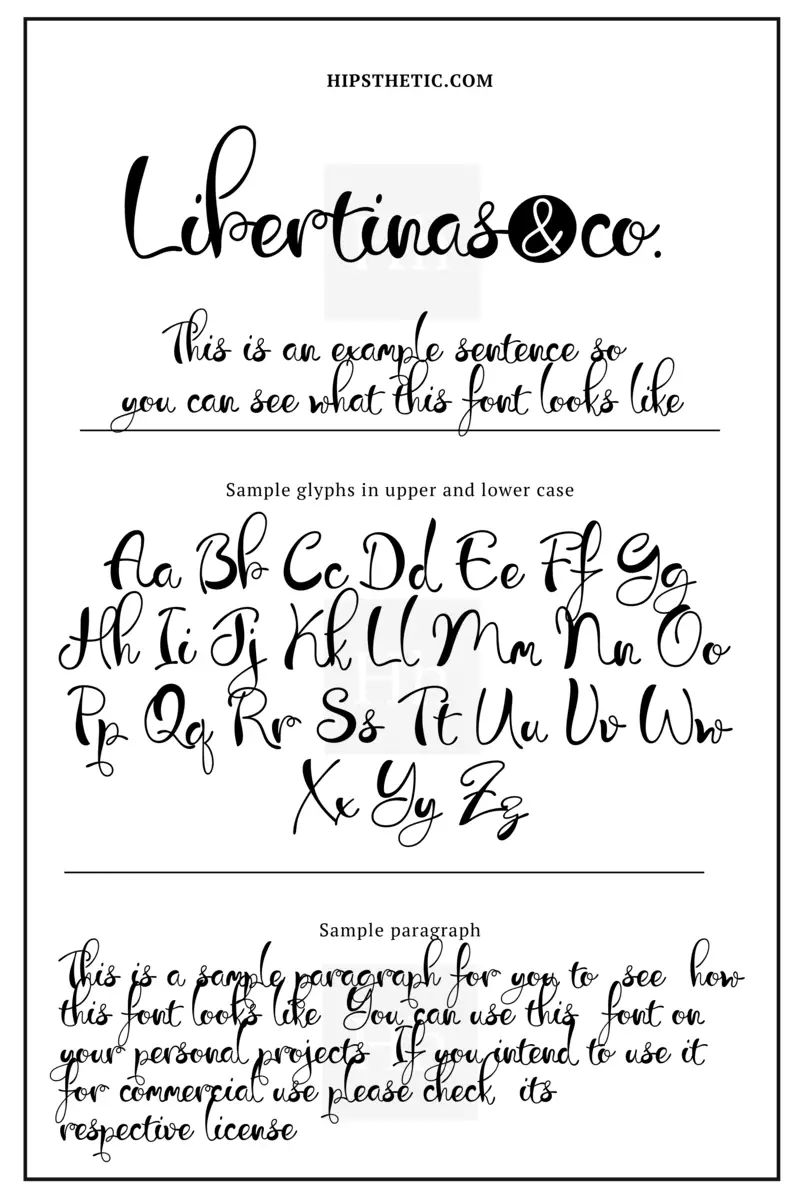 HIPSTHETIC.COM
Libertinas&co.
This is an example sentence so
you can see what this font looks like
Sample glyphs in upper and lower case
Aa Bb Cc Dd Ee Ff Gg
Hh Ii Jj Kk Ll Mm Nn Oo
Pp Qq Rr Ss Tt Uu Vv Ww
Xx Yy Zz
Sample paragraph
This is a sample paragraph for you to see how
this font looks like You can use this font on
your personal projects If you intend to use it
for commercial use please check its
respective license